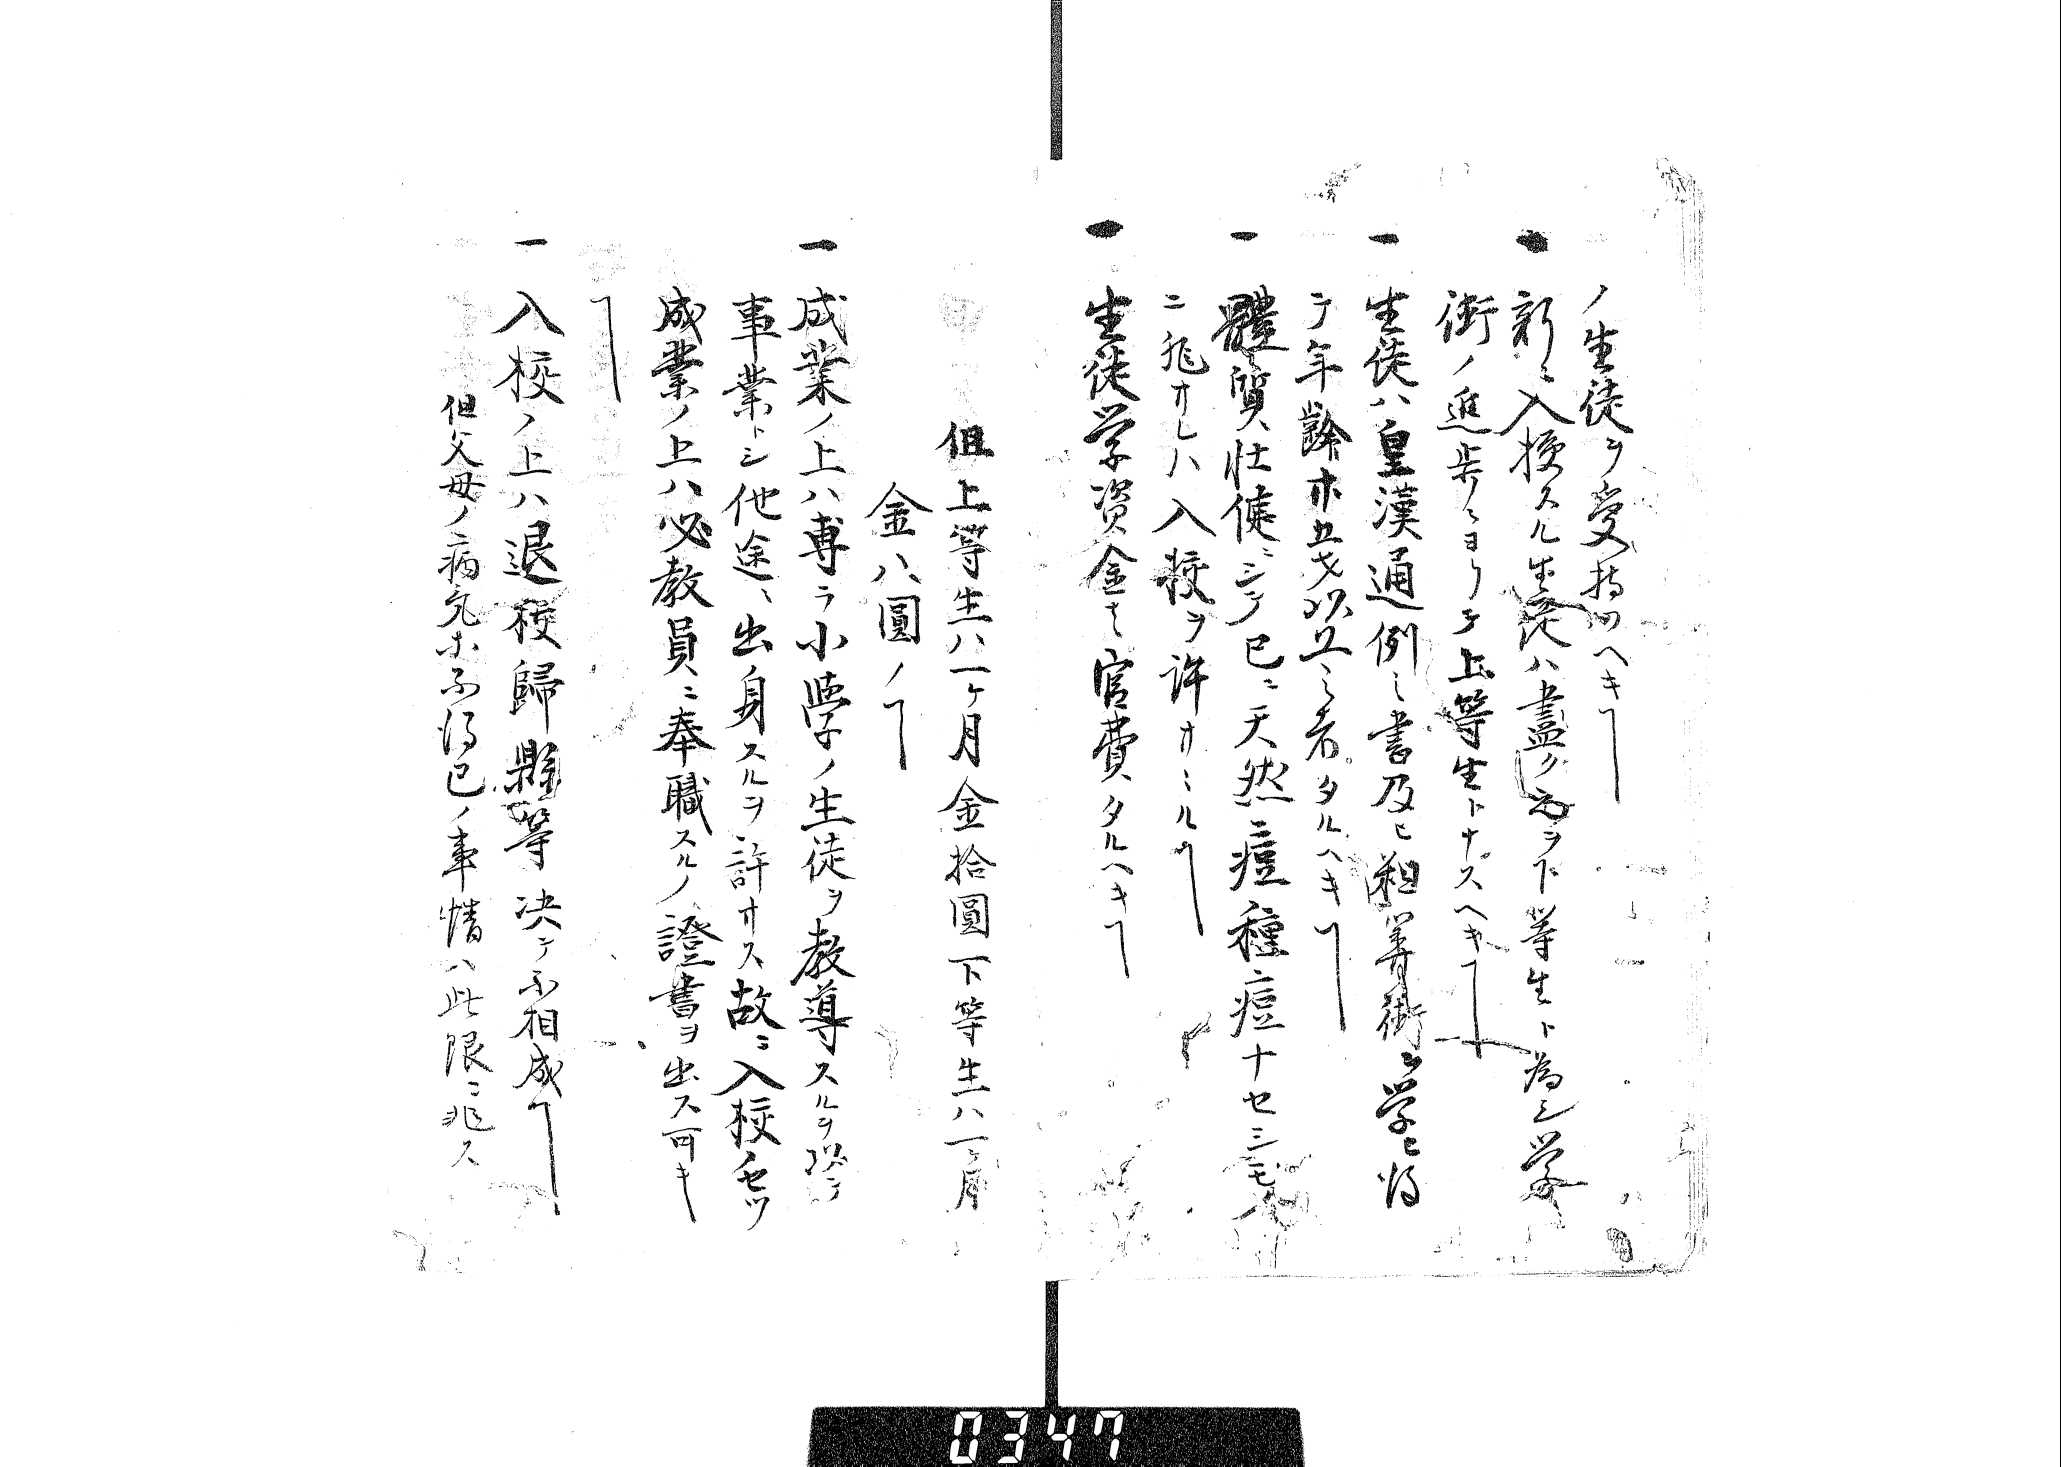 ノ生徒ヲ受持ツヘキヿ
一 新ニ入校スル生徒ハ盡ク之ヲ下等生ト為シ學
術ノ進歩ニヨリテ上等生トナスヘキヿ
一 生徒ハ皇漢通例ノ書及ヒ粗算術ヲ学ヒ得
テ年齢廿五才以上ノ者タルヘキヿ
一 體質壮健ニシテ已ニ天然痘種痘ナセシモノ
ニ非サレハ入校ヲ許サヽルヿ
一 生徒学資金ハ官費タルヘキヿ
但上等生ハ一ケ月金拾圓下等生ハ一ケ月
金八圓ノヿ
一 成業ノ上ハ専ラ小學ノ生徒ヲ教導スルヲ以テ
事業トシ他途ニ出身スルヲ許サス故ニ入校セツ
成業ノ上ハ必教員ニ奉職スルノ證書ヲ出ス可キ
ヿ
一 入校ノ上ハ退校歸縣等决テ不相成ヿ
但父母ノ病氣等不得已ノ事情ハ此限ニ非ス
0347